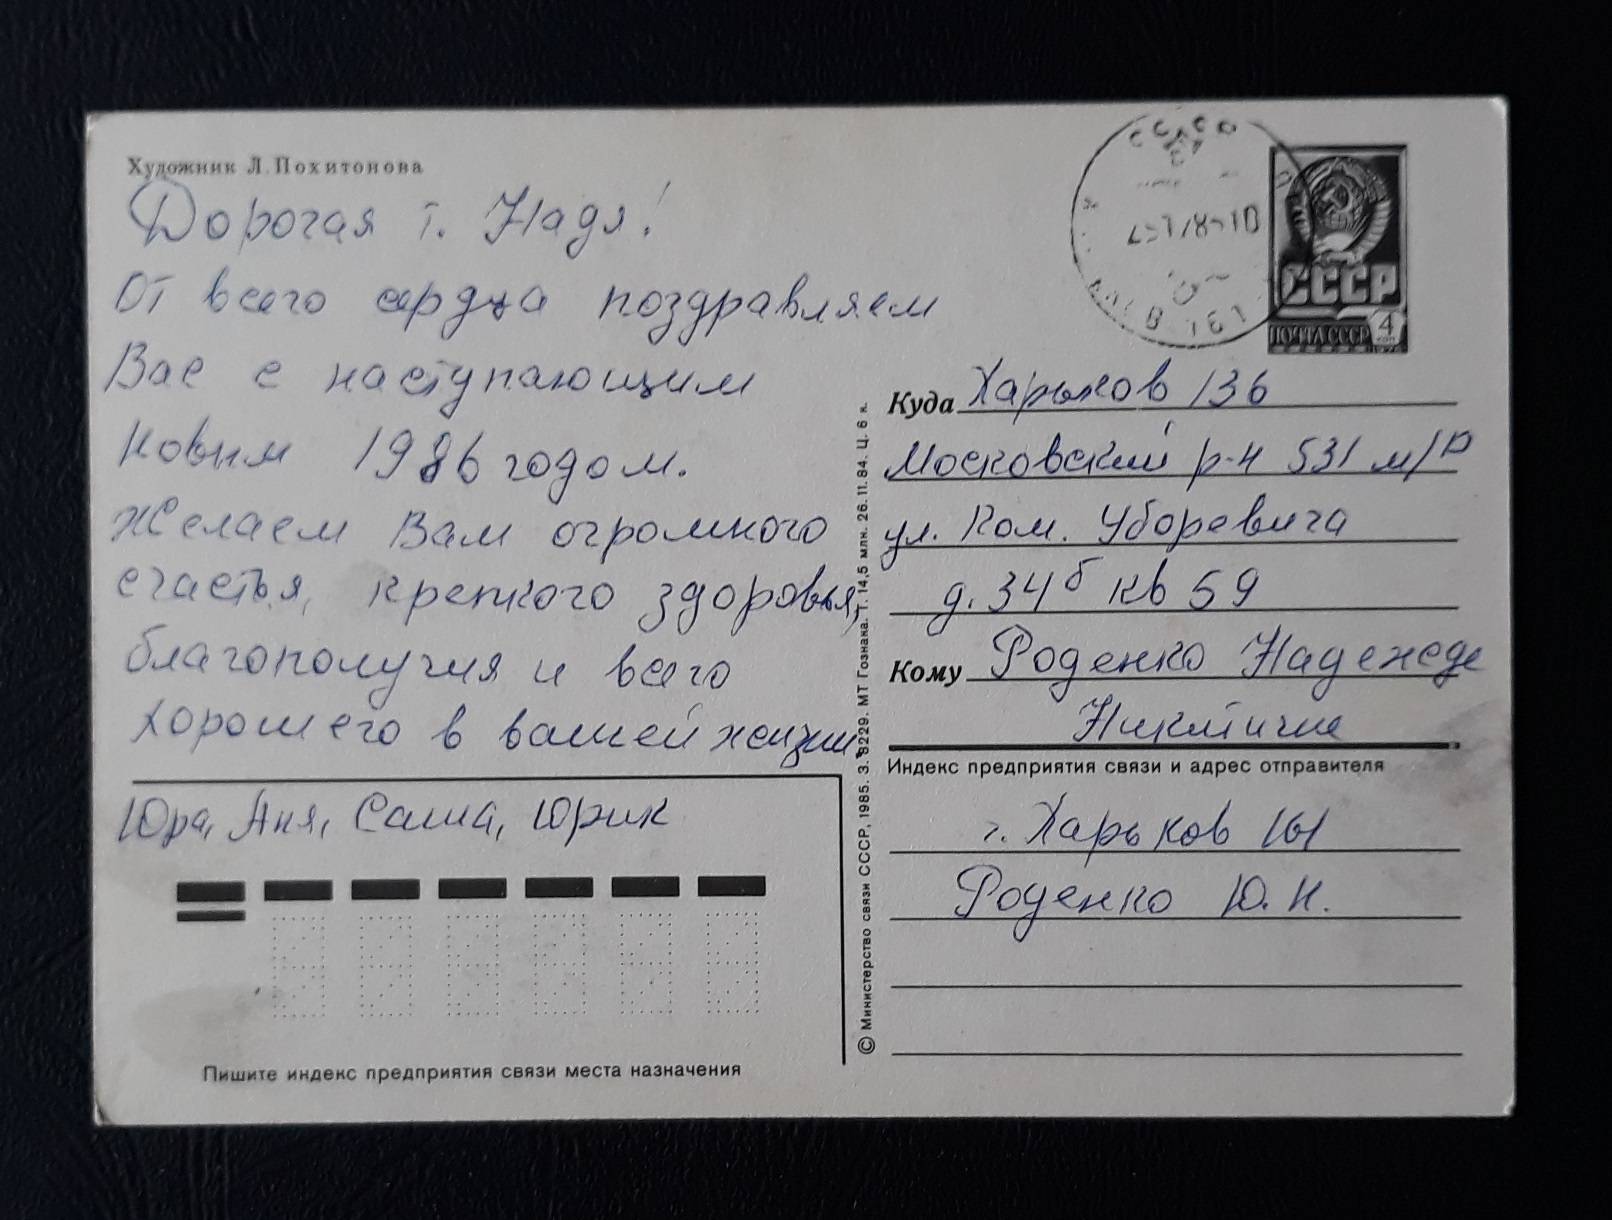 Художник Л. Похитонова
Дорогая т. Надя!
От всего сердца поздравляем
Вас с наступающим
Новым 1986 годом.
Желаем Вам огромного
счастья, крепкого здоровья,
благополучия и всего
хорошего в вашей жизни
Юра, Аня, Саша, Юрик
Пишите индекс предприятия связи места назначения
© Министерство связи СССР, 1985. З. 8229. МТ Гознака. Т. 14,5 млн. 26.11.84. Ц. 6 к.
СССР
ПОЧТА СССР
4
коп
Куда Харьков 136
Московский р-н 531 м/р
ул. Ком. Уборевича
д. 34б кв 59
Кому Роденко Надежде
Никитичне
Индекс предприятия связи и адрес отправителя
г. Харьков
Роденко Ю. Н.